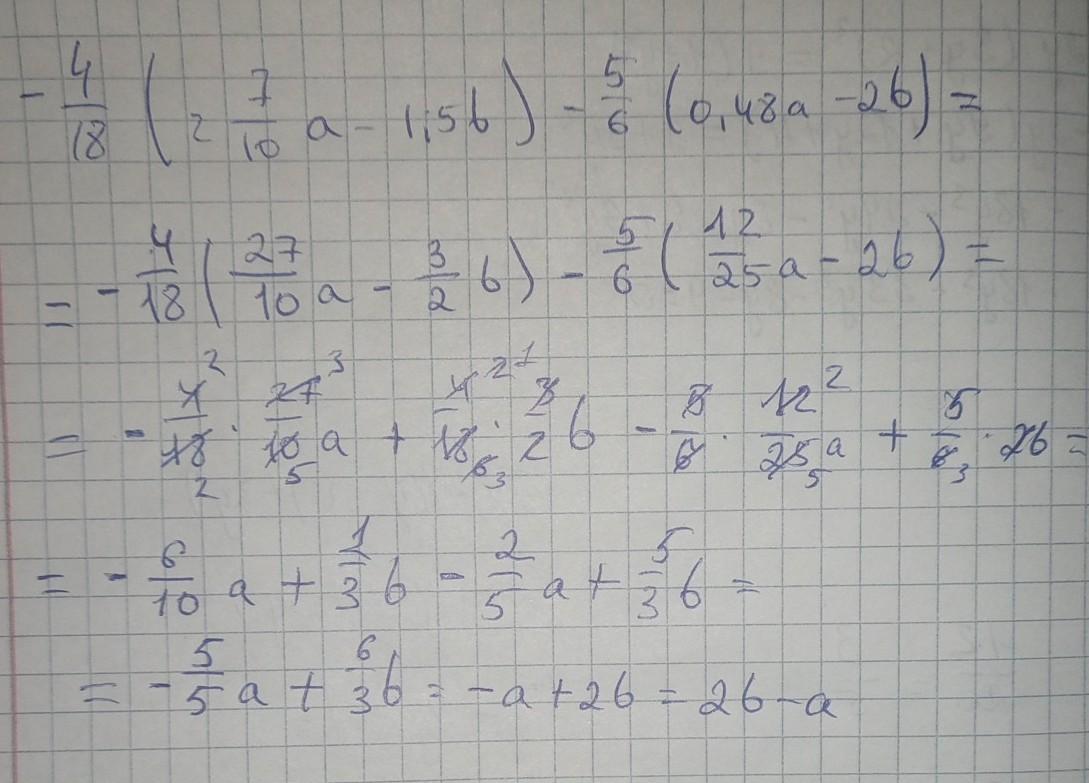 - 4/18 (2 7/10 a - 1,5b) - 5/6 (0,48a - 2b) =
= - 4/18 (27/10 a - 3/2 b) - 5/6 (12/25 a - 2b) =
= - 4/18 · 27/10 a + 4/18 · 3/2 b - 5/6 · 12/25 a + 5/6 · 2b =
= - 6/10 a + 1/3 b - 2/5 a + 5/3 b =
= - 5/5 a + 6/3 b = -a + 2b = 2b - a